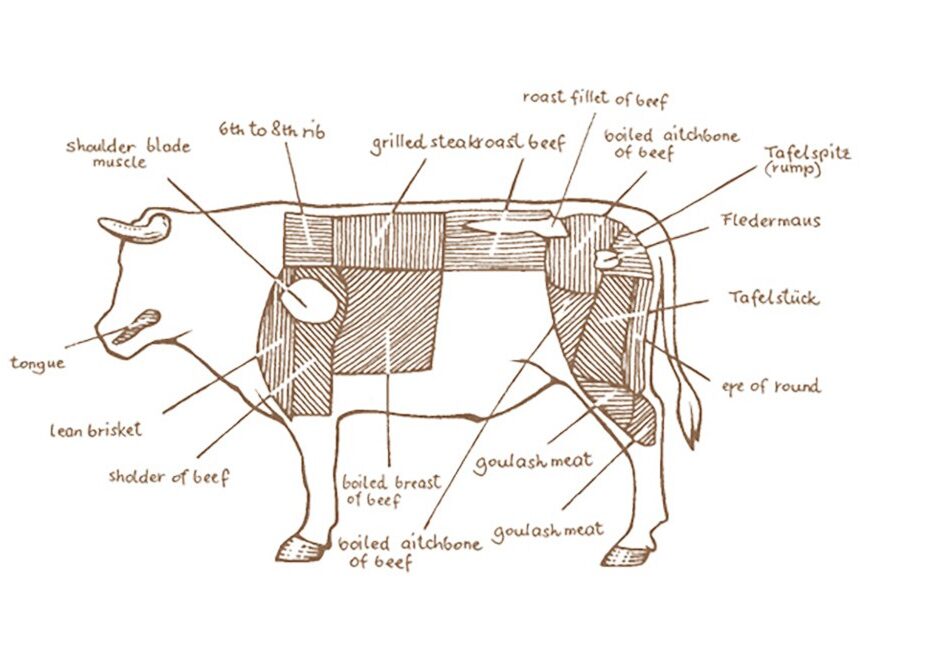 roast fillet of beef
6th to 8th rib
shoulder blade
muscle
grilled steak
roast beef
boiled aitchbone
of beef
Tafelspitz
(rump)
Fledermaus
Tafelstück
tongue
eye of round
lean brisket
sholder of beef
goulash meat
boiled breast
of beef
goulash meat
boiled aitchbone
of beef